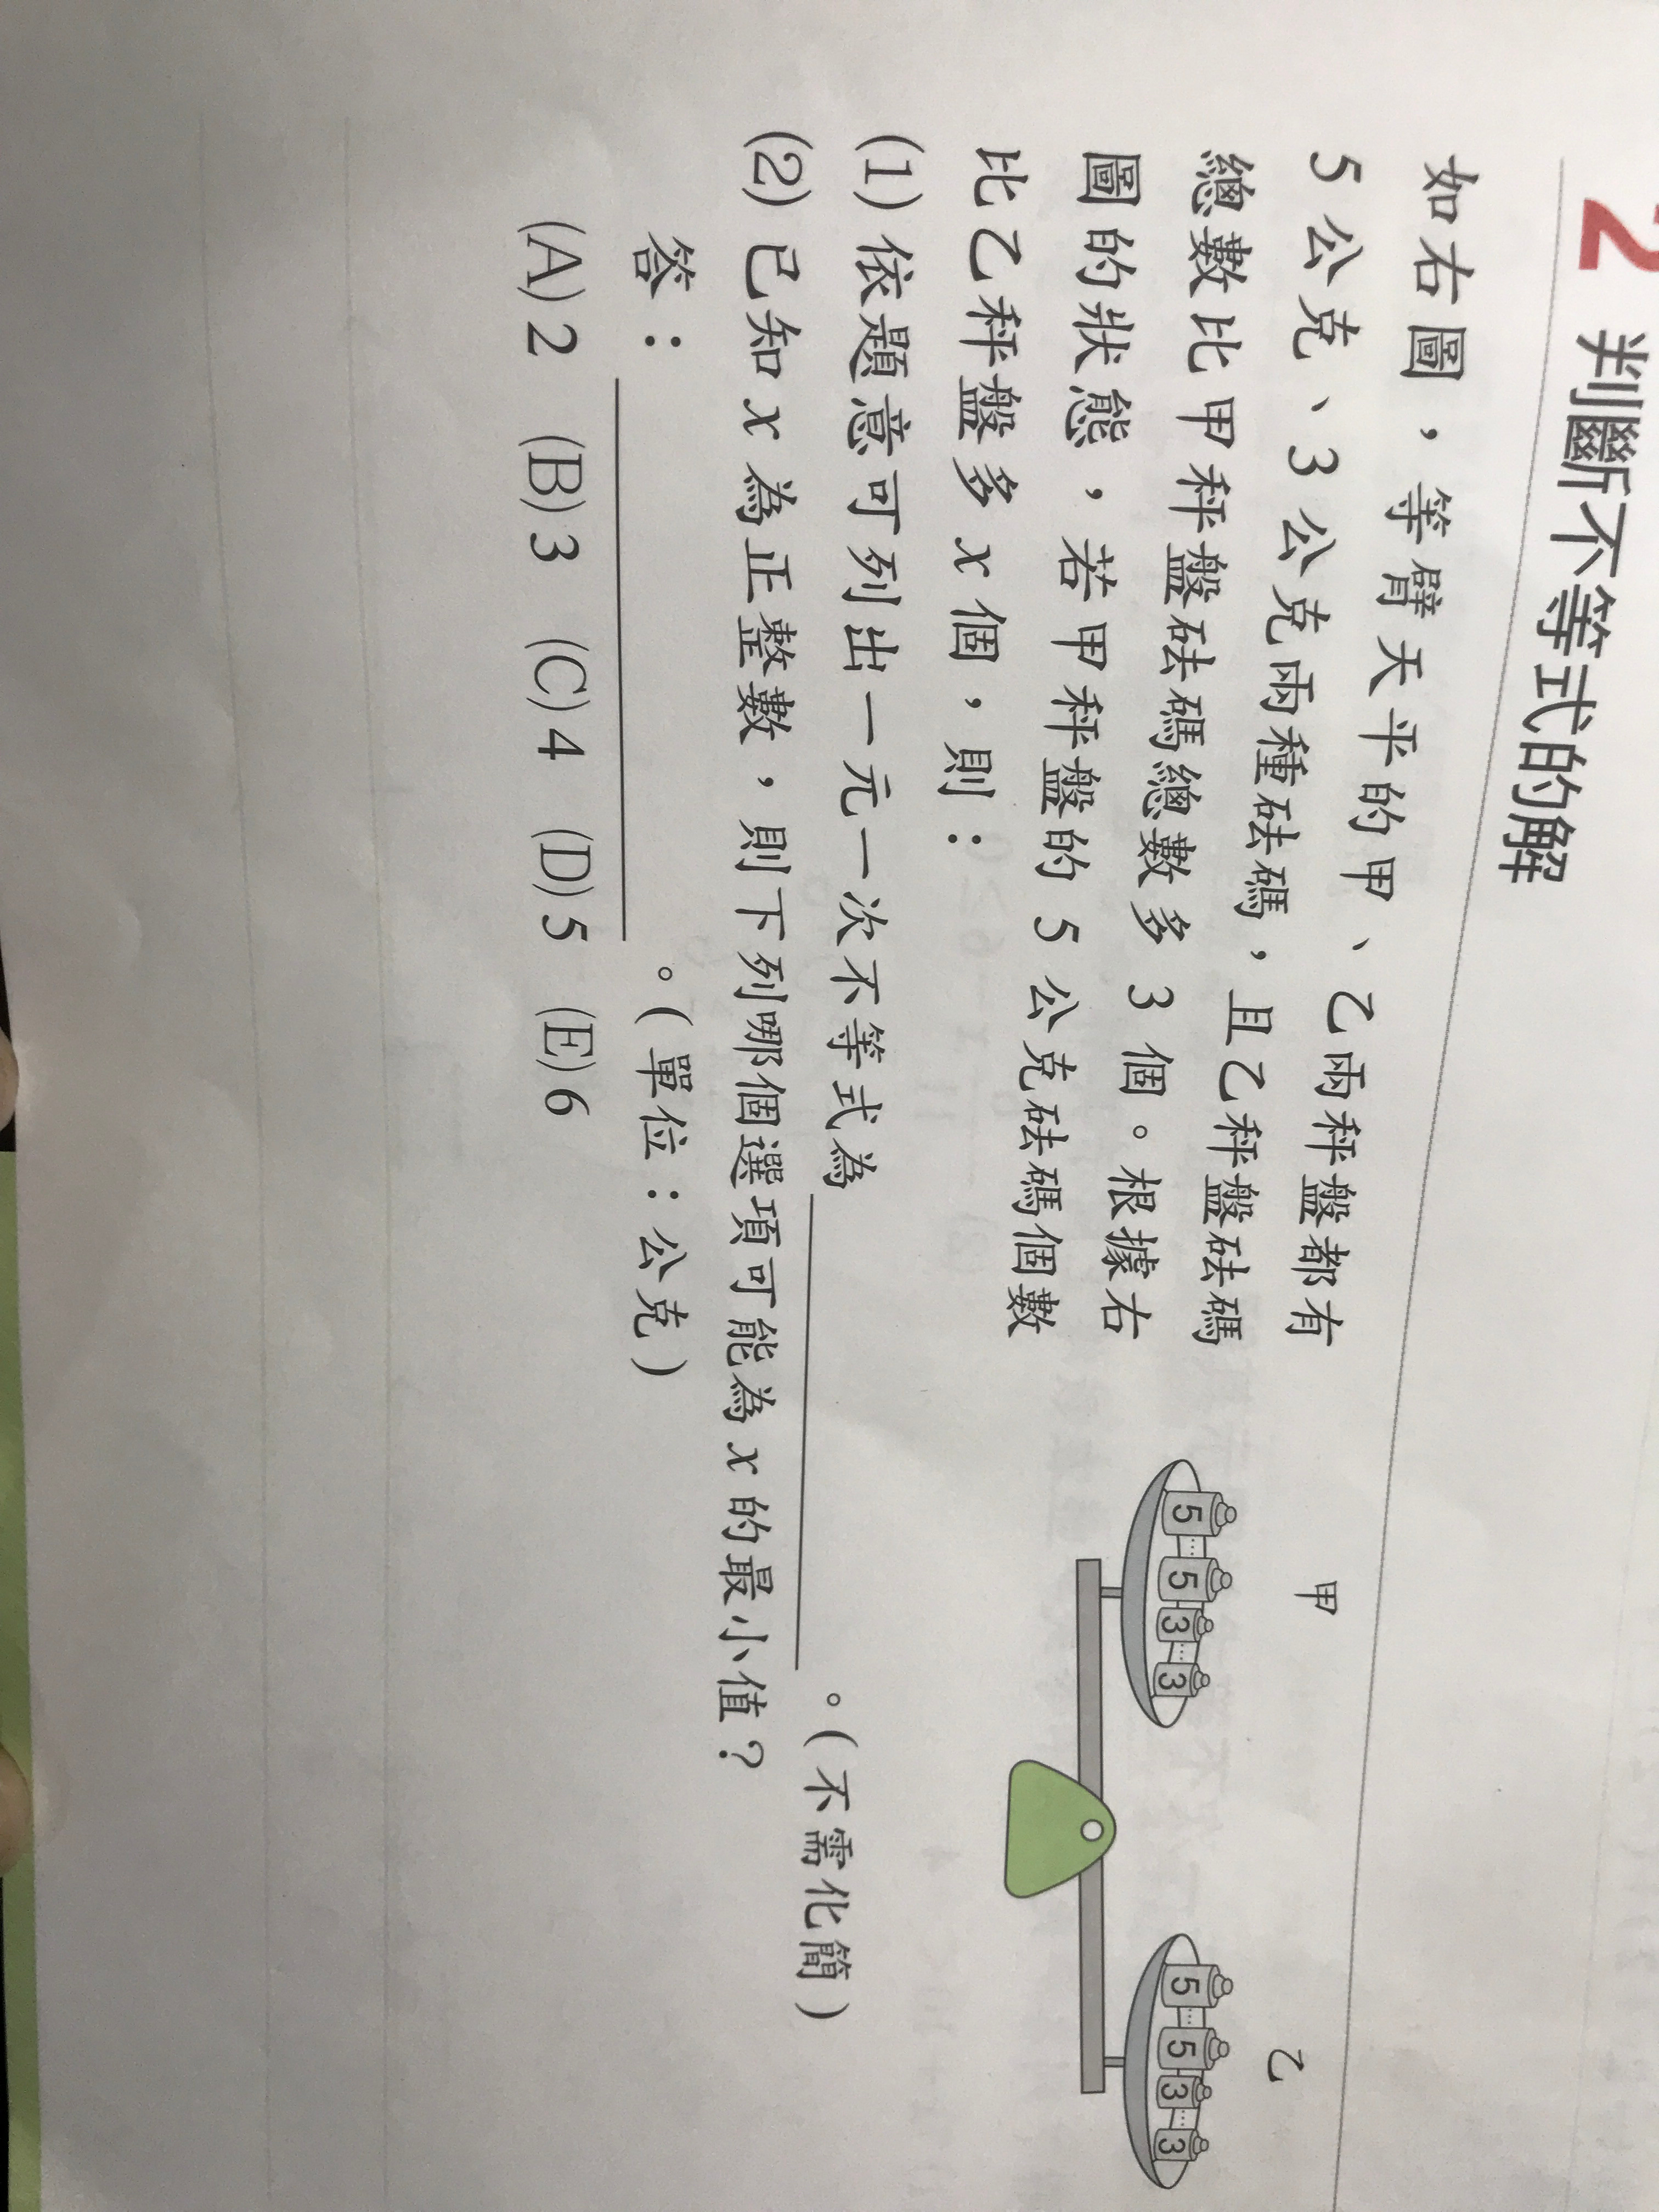 2 判斷不等式的解
如右圖，等臂天平的甲、乙兩秤盤都有
5 公克、3 公克兩種砝碼，且乙秤盤砝碼
總數比甲秤盤砝碼總數多 3 個。根據右
圖的狀態，若甲秤盤的 5 公克砝碼個數
比乙秤盤多 x 個，則：
甲
乙
5 … 5 3 … 3
5 … 5 3 … 3
(1) 依題意可列出一元一次不等式為＿＿＿＿＿＿。(不需化簡)
(2) 已知 x 為正整數，則下列哪個選項可能為 x 的最小值？
答：＿＿＿＿＿＿。(單位：公克)
(A) 2 (B) 3 (C) 4 (D) 5 (E) 6